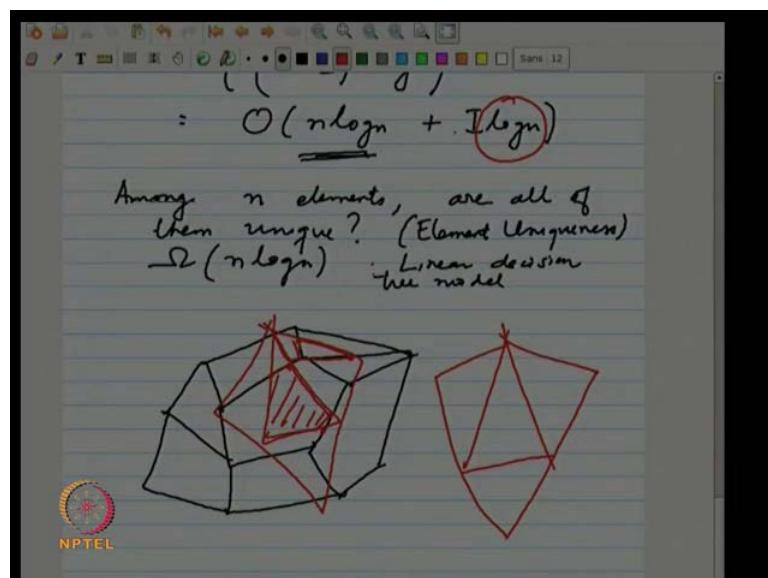 Sans 12
= O(nlogn + Ilogn)
Among n elements, are all of
them unique? (Element Uniqueness)
Ω(nlogn) : Linear decision
tree model
NPTEL